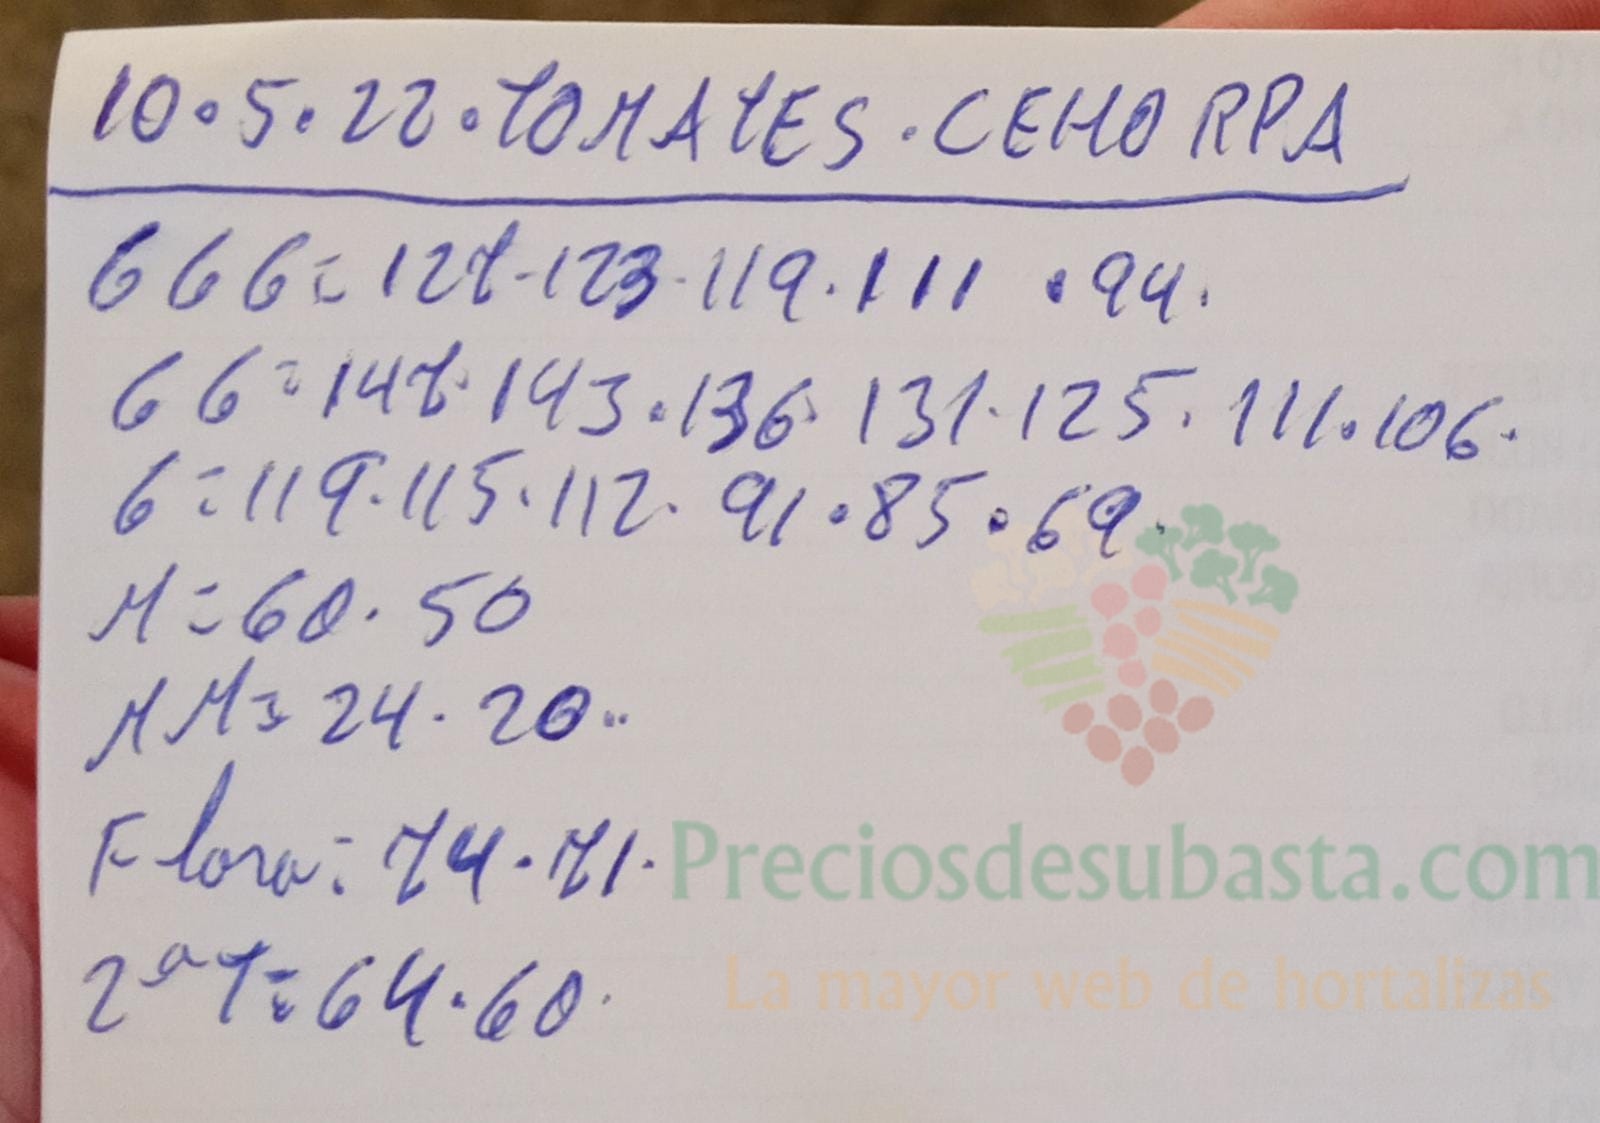 10.5.22.TOMATES.CEHORPA
GGG=127-123-119.111.94.
GG=147.143.136.131.125.111.106.
G=119.115.112.91.85.69.
M=60.50
MM=24.20..
Flora=74.71.
2ªT=64.60.
Preciosdesubasta.com
La mayor web de hortalizas